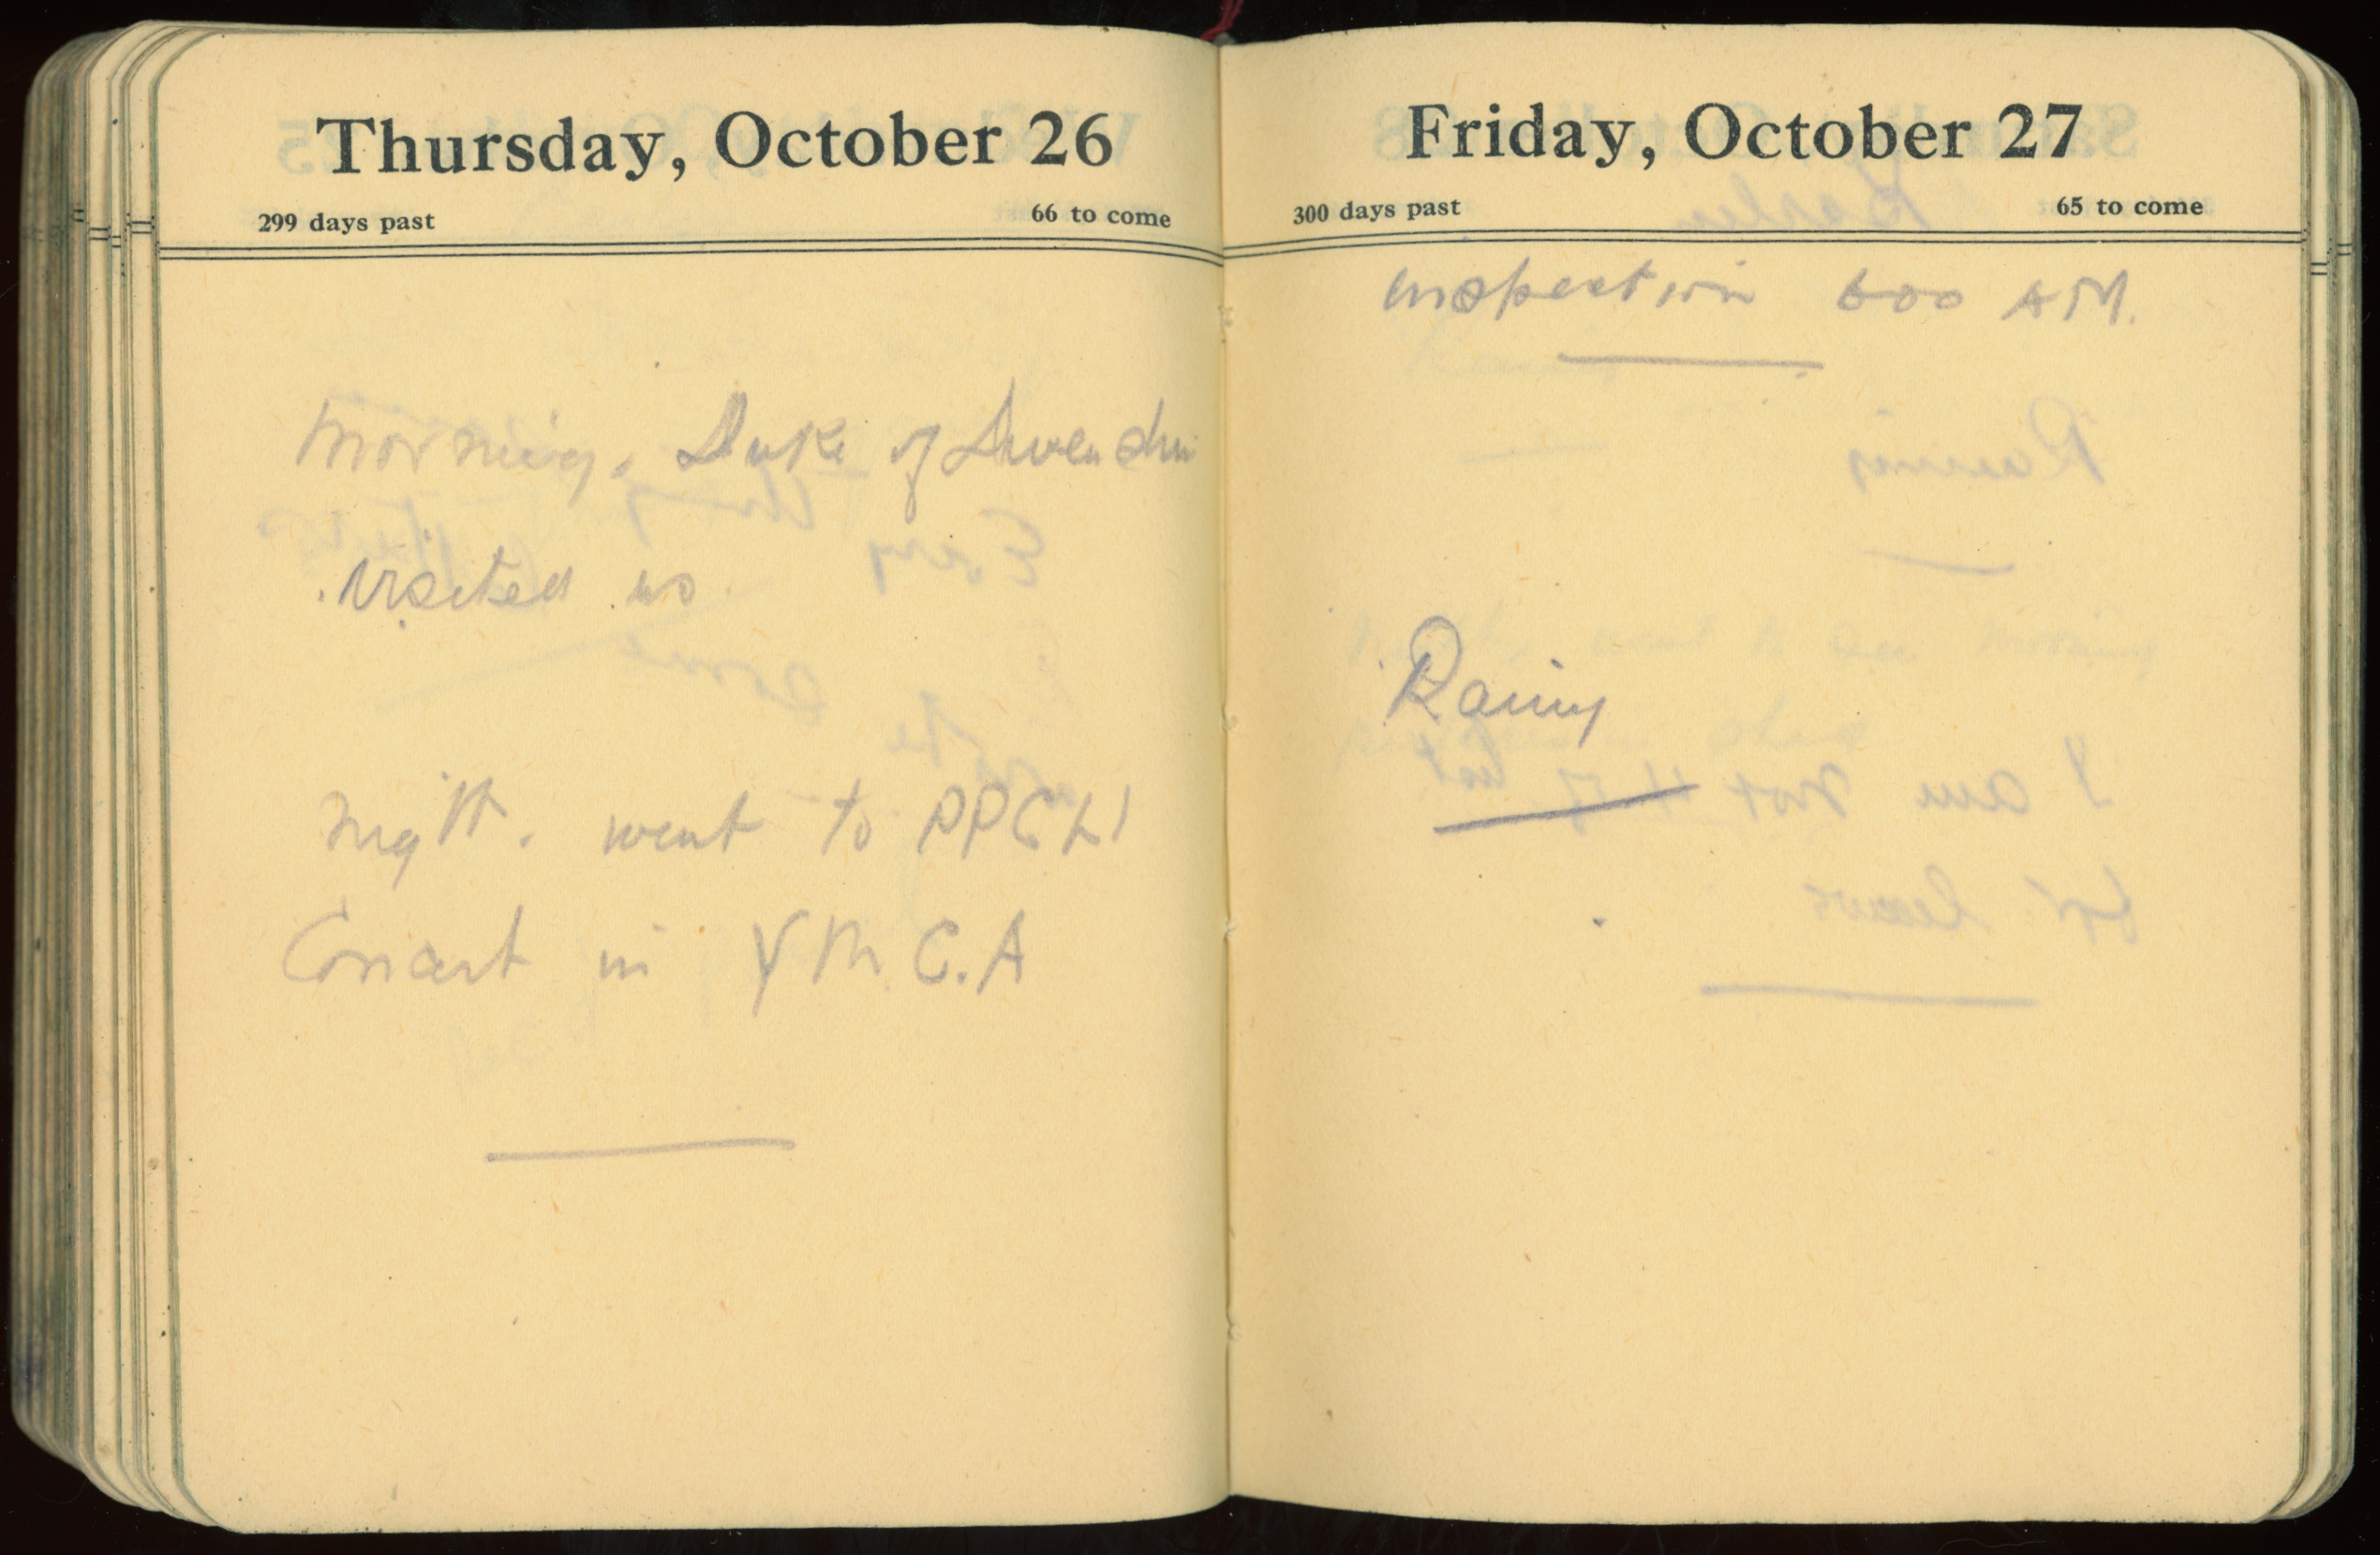 Thursday, October 26
299 days past 66 to come
Morning. Duke of
visited us
night. went to PPCLI
Concert in Y M C.A
Friday, October 27
300 days past 65 to come
Inspection 600 AM.
Rainy